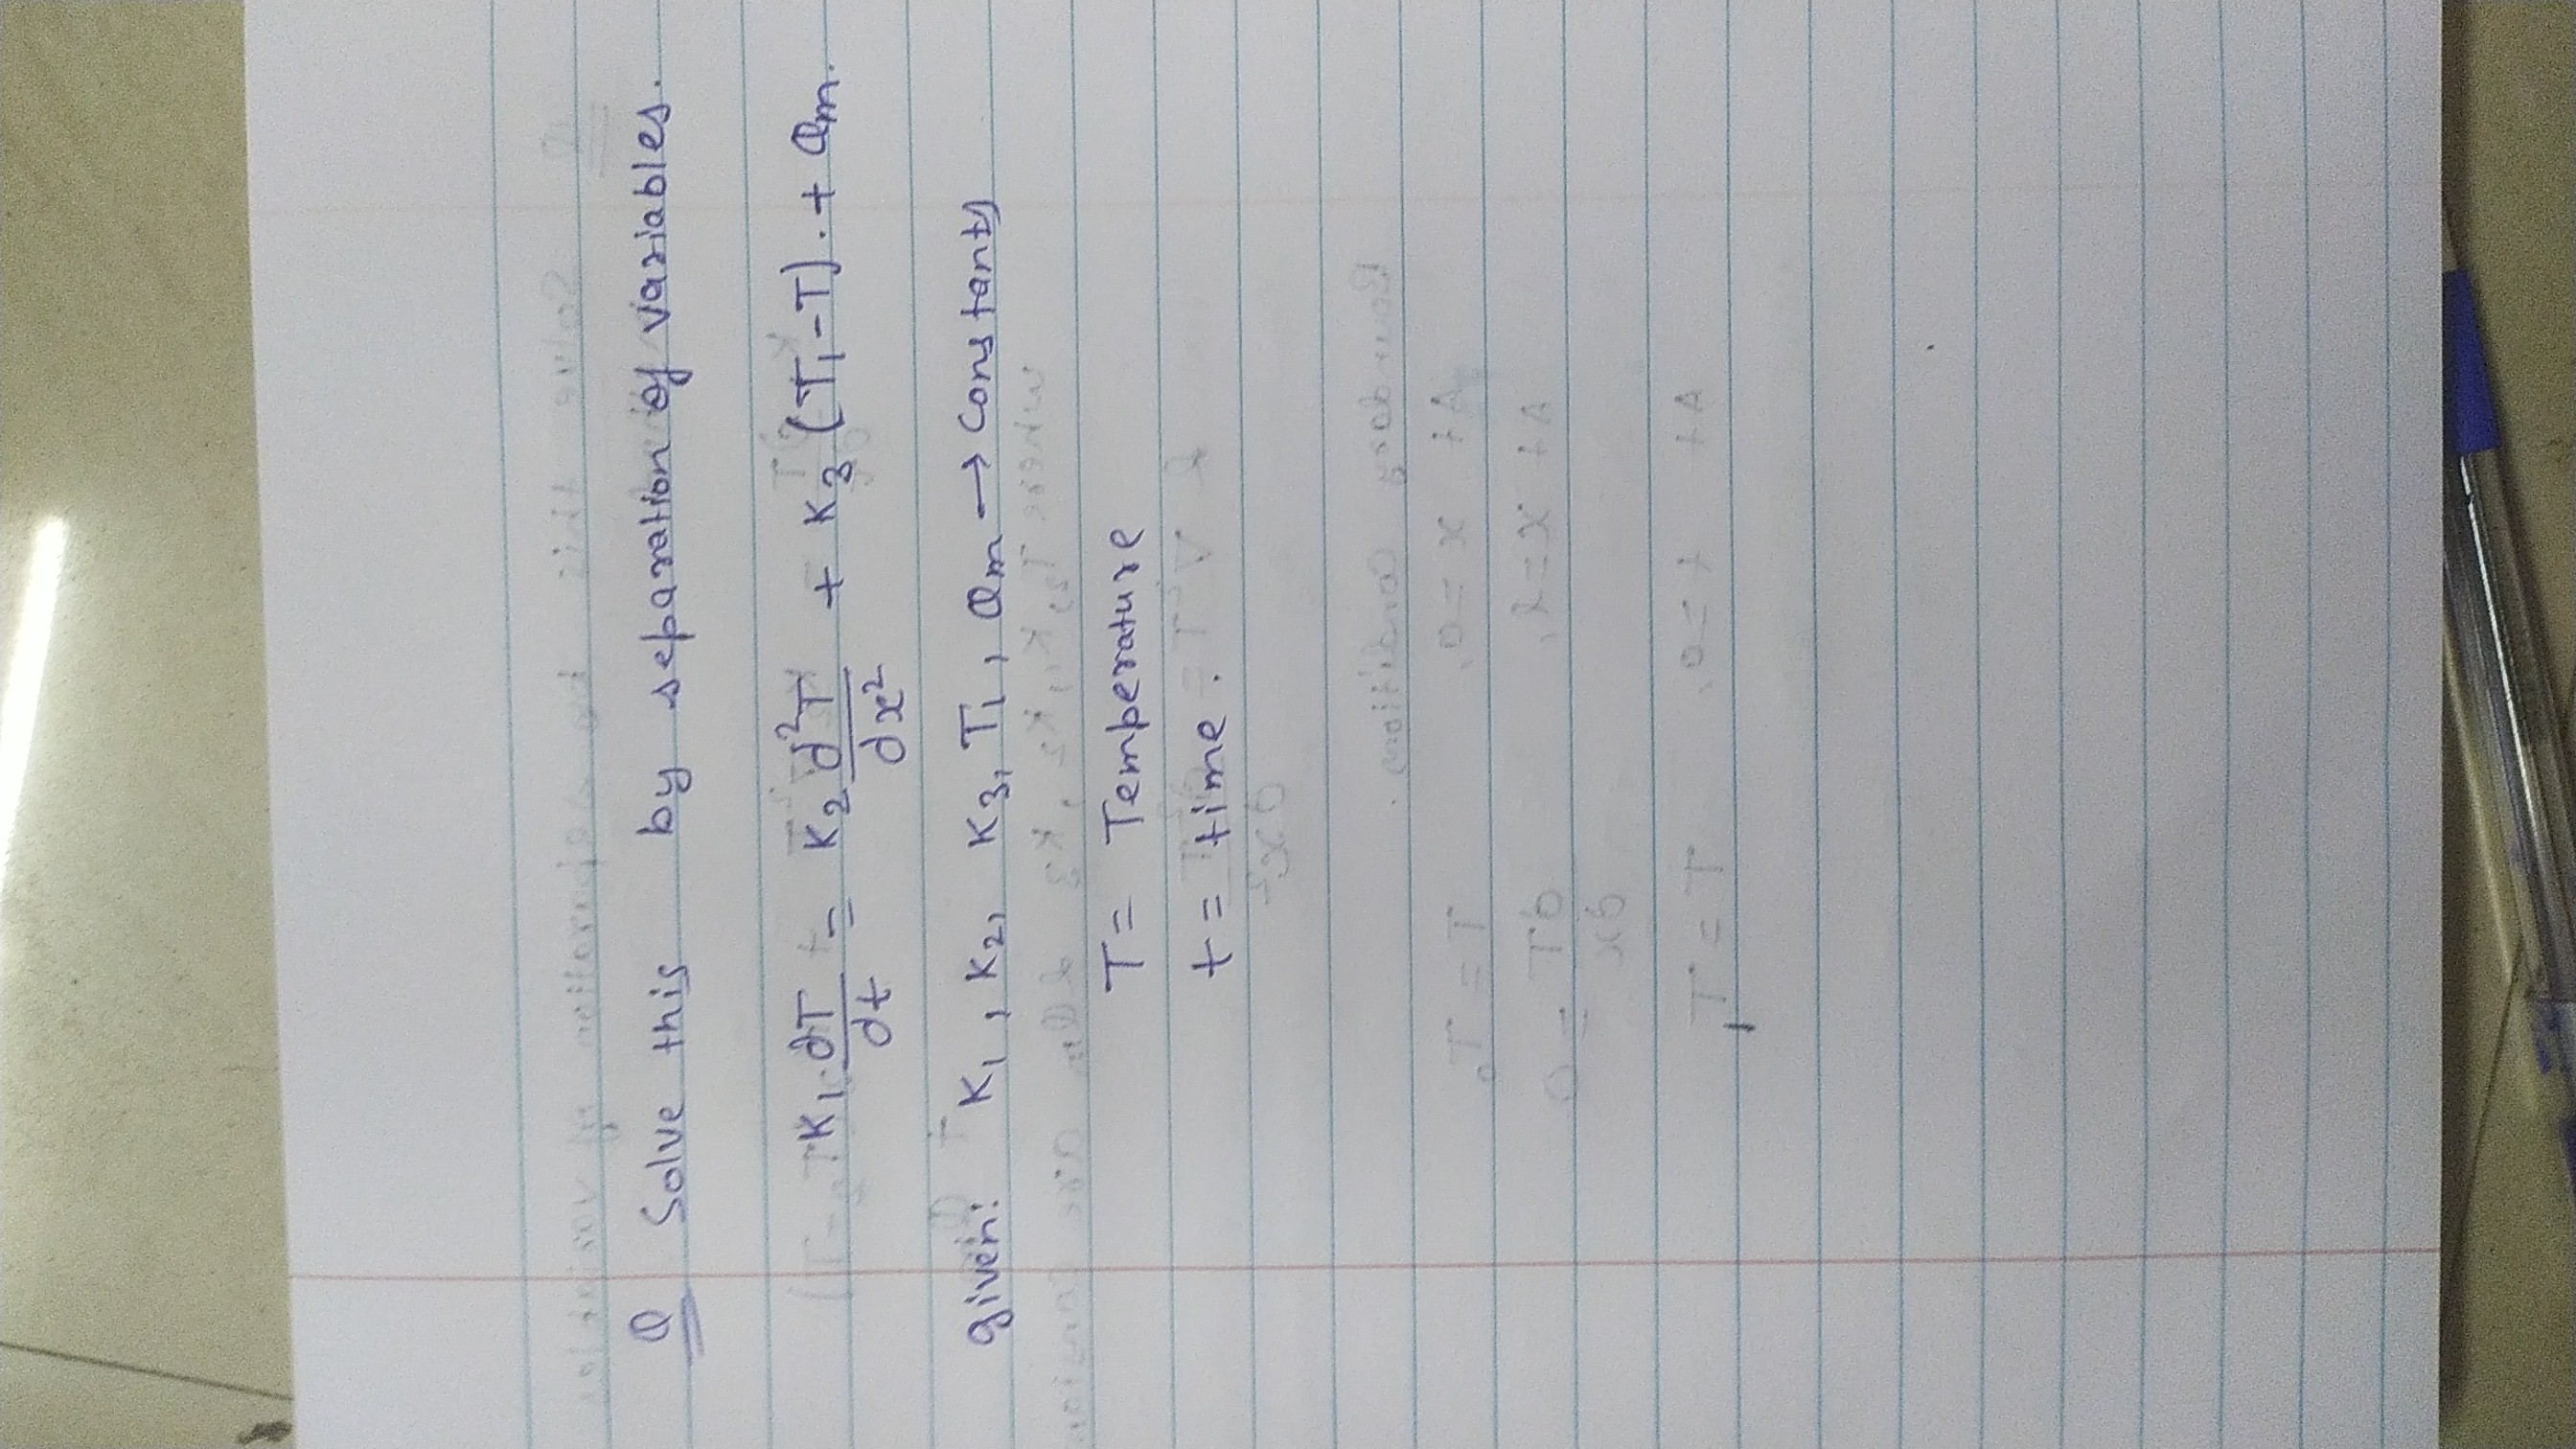 Q Solve this by separation of variables.
K₁ ∂T/∂t = K₂ ∂²T/∂x² + K₃ (T₁-T). + Qm.
given: K₁, K₂, K₃, T₁, Qm → Constants
T = Temperature
t = time.